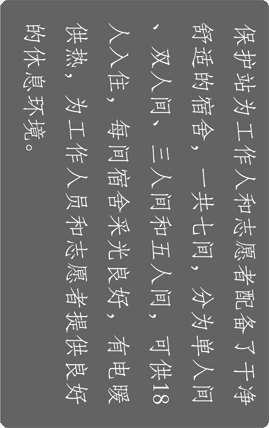 保护站为工作人和志愿者配备了干净
舒适的宿舍，一共七间，分为单人间
、双人间、三人间和五人间，可供18
人入住，每间宿舍采光良好，有电暖
供热，为工作人员和志愿者提供良好
的休息环境。